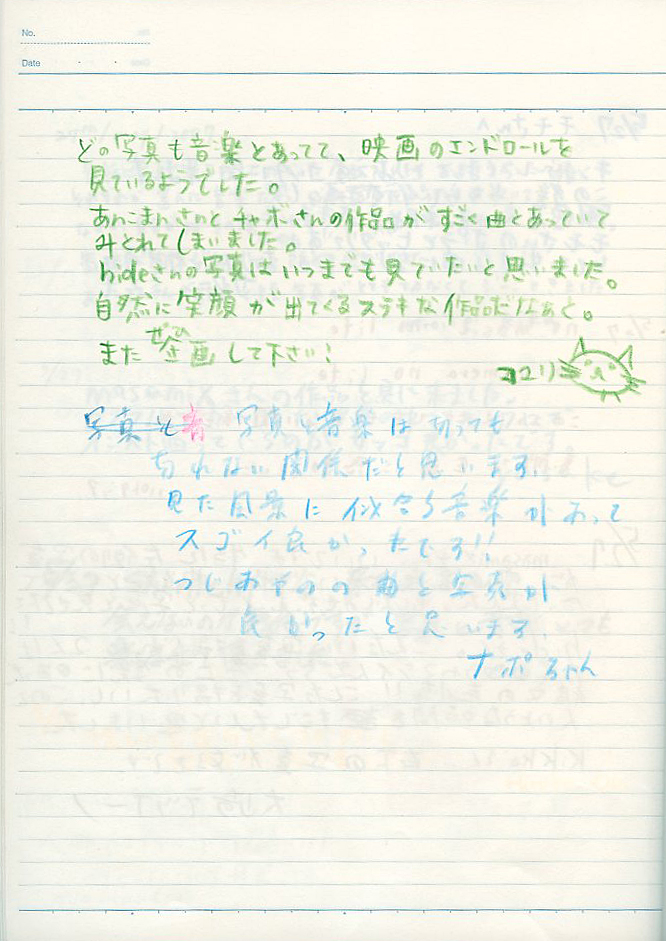 No.
Date
どの写真も音楽とあってて、映画のエンドロールを
見ているようでした。
あんこまんさんと チャボさんの作品が すごく曲とあっていて
みとれてしまいました。
hideさんの写真は いつまでも見ていたいと思いました。
自然に笑顔が出てくるステキな作品だなぁと。
また ぜひ 企画して下さい!
ココリ
写真と音 写真と音楽は切っても
切れない関係だと思います。
見た風景に似合う音楽があって
スゴイ良かったです!!
つじあやのの曲と写真が
良かったと思います。
ナポちゃん